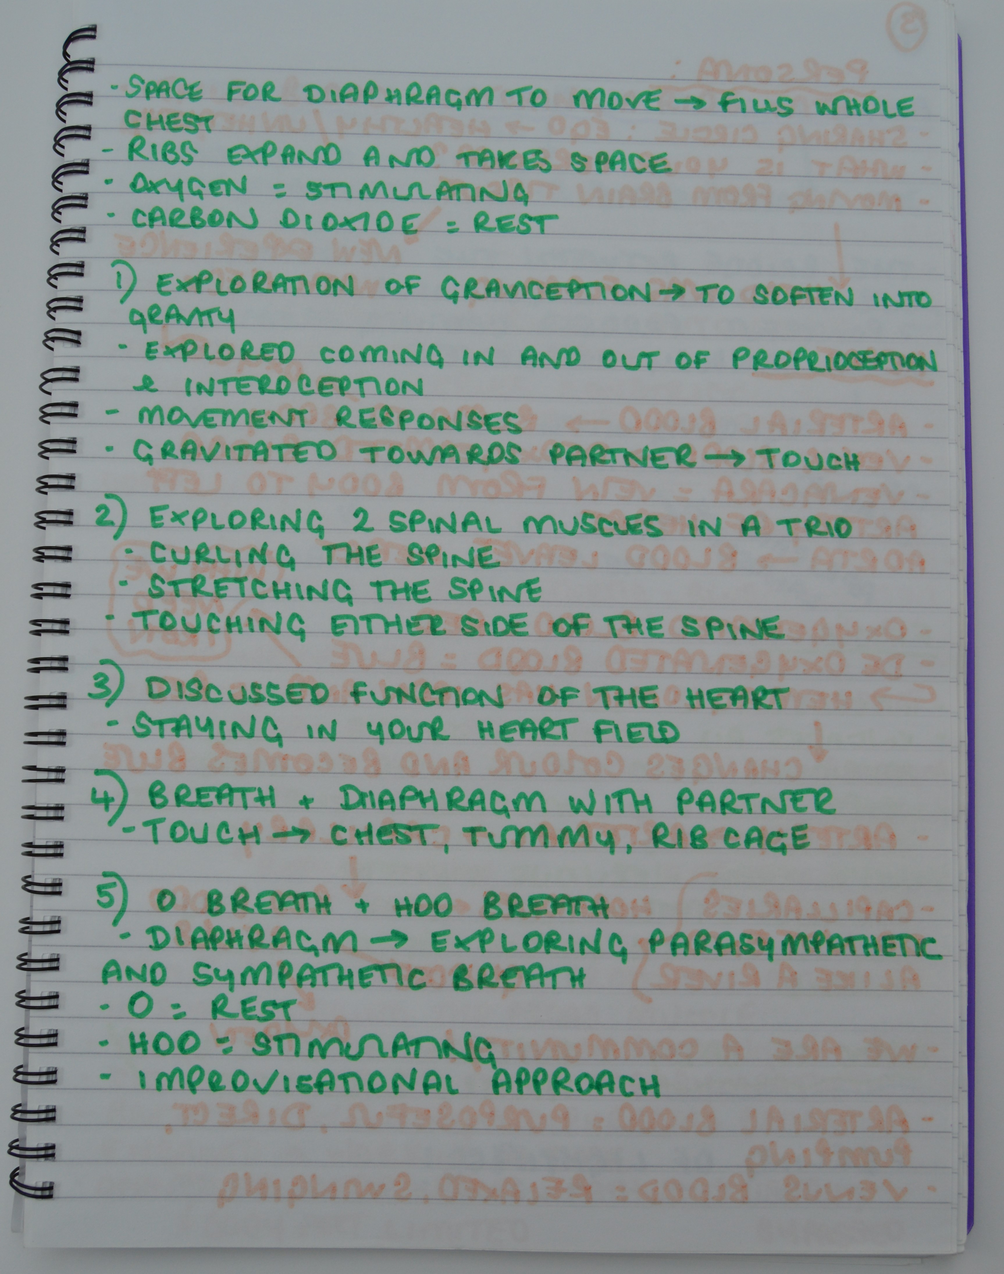 - SPACE FOR DIAPHRAGM TO MOVE → FILLS WHOLE
CHEST
- RIBS EXPAND AND TAKES SPACE
- OXYGEN = STIMULATING
- CARBON DIOXIDE = REST
1) EXPLORATION OF GRAVICEPTION → TO SOFTEN INTO
GRAVITY
- EXPLORED COMING IN AND OUT OF PROPRIOCEPTION
& INTEROCEPTION
- MOVEMENT RESPONSES
- GRAVITATED TOWARDS PARTNER → TOUCH
2) EXPLORING 2 SPINAL MUSCLES IN A TRIO
- CURLING THE SPINE
- STRETCHING THE SPINE
- TOUCHING EITHER SIDE OF THE SPINE
3) DISCUSSED FUNCTION OF THE HEART
- STAYING IN YOUR HEART FIELD
4) BREATH + DIAPHRAGM WITH PARTNER
- TOUCH → CHEST, TUMMY, RIB CAGE
5) O BREATH + HOO BREATH
- DIAPHRAGM → EXPLORING PARASYMPATHETIC
AND SYMPATHETIC BREATH
- O = REST
- HOO = STIMULATING
- IMPROVISATIONAL APPROACH